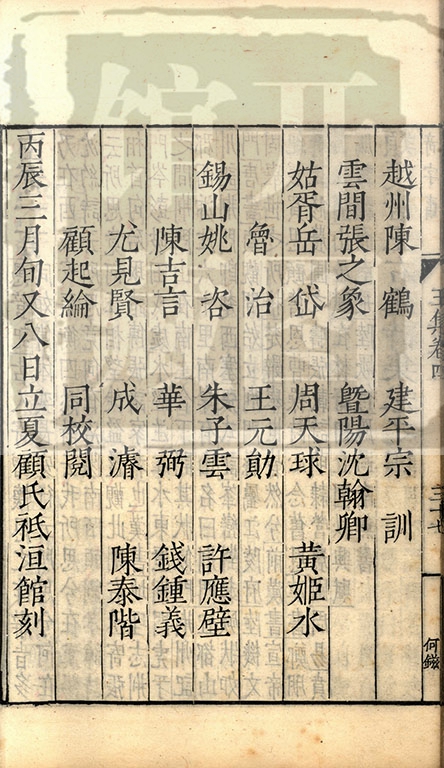 王集卷四
三十七
何鎡
越州陳鶴 建平宗訓
雲間張之象 暨陽沈翰卿
姑胥岳岱 周天球 黃姬水
魯治 王元勛
錫山姚咨 朱子雲 許應壁
陳吉言 華弼 錢鍾義
尤見賢 成濬 陳泰階
顧起綸 同校閱
丙辰三月旬又八日立夏顧氏祗洹館刻